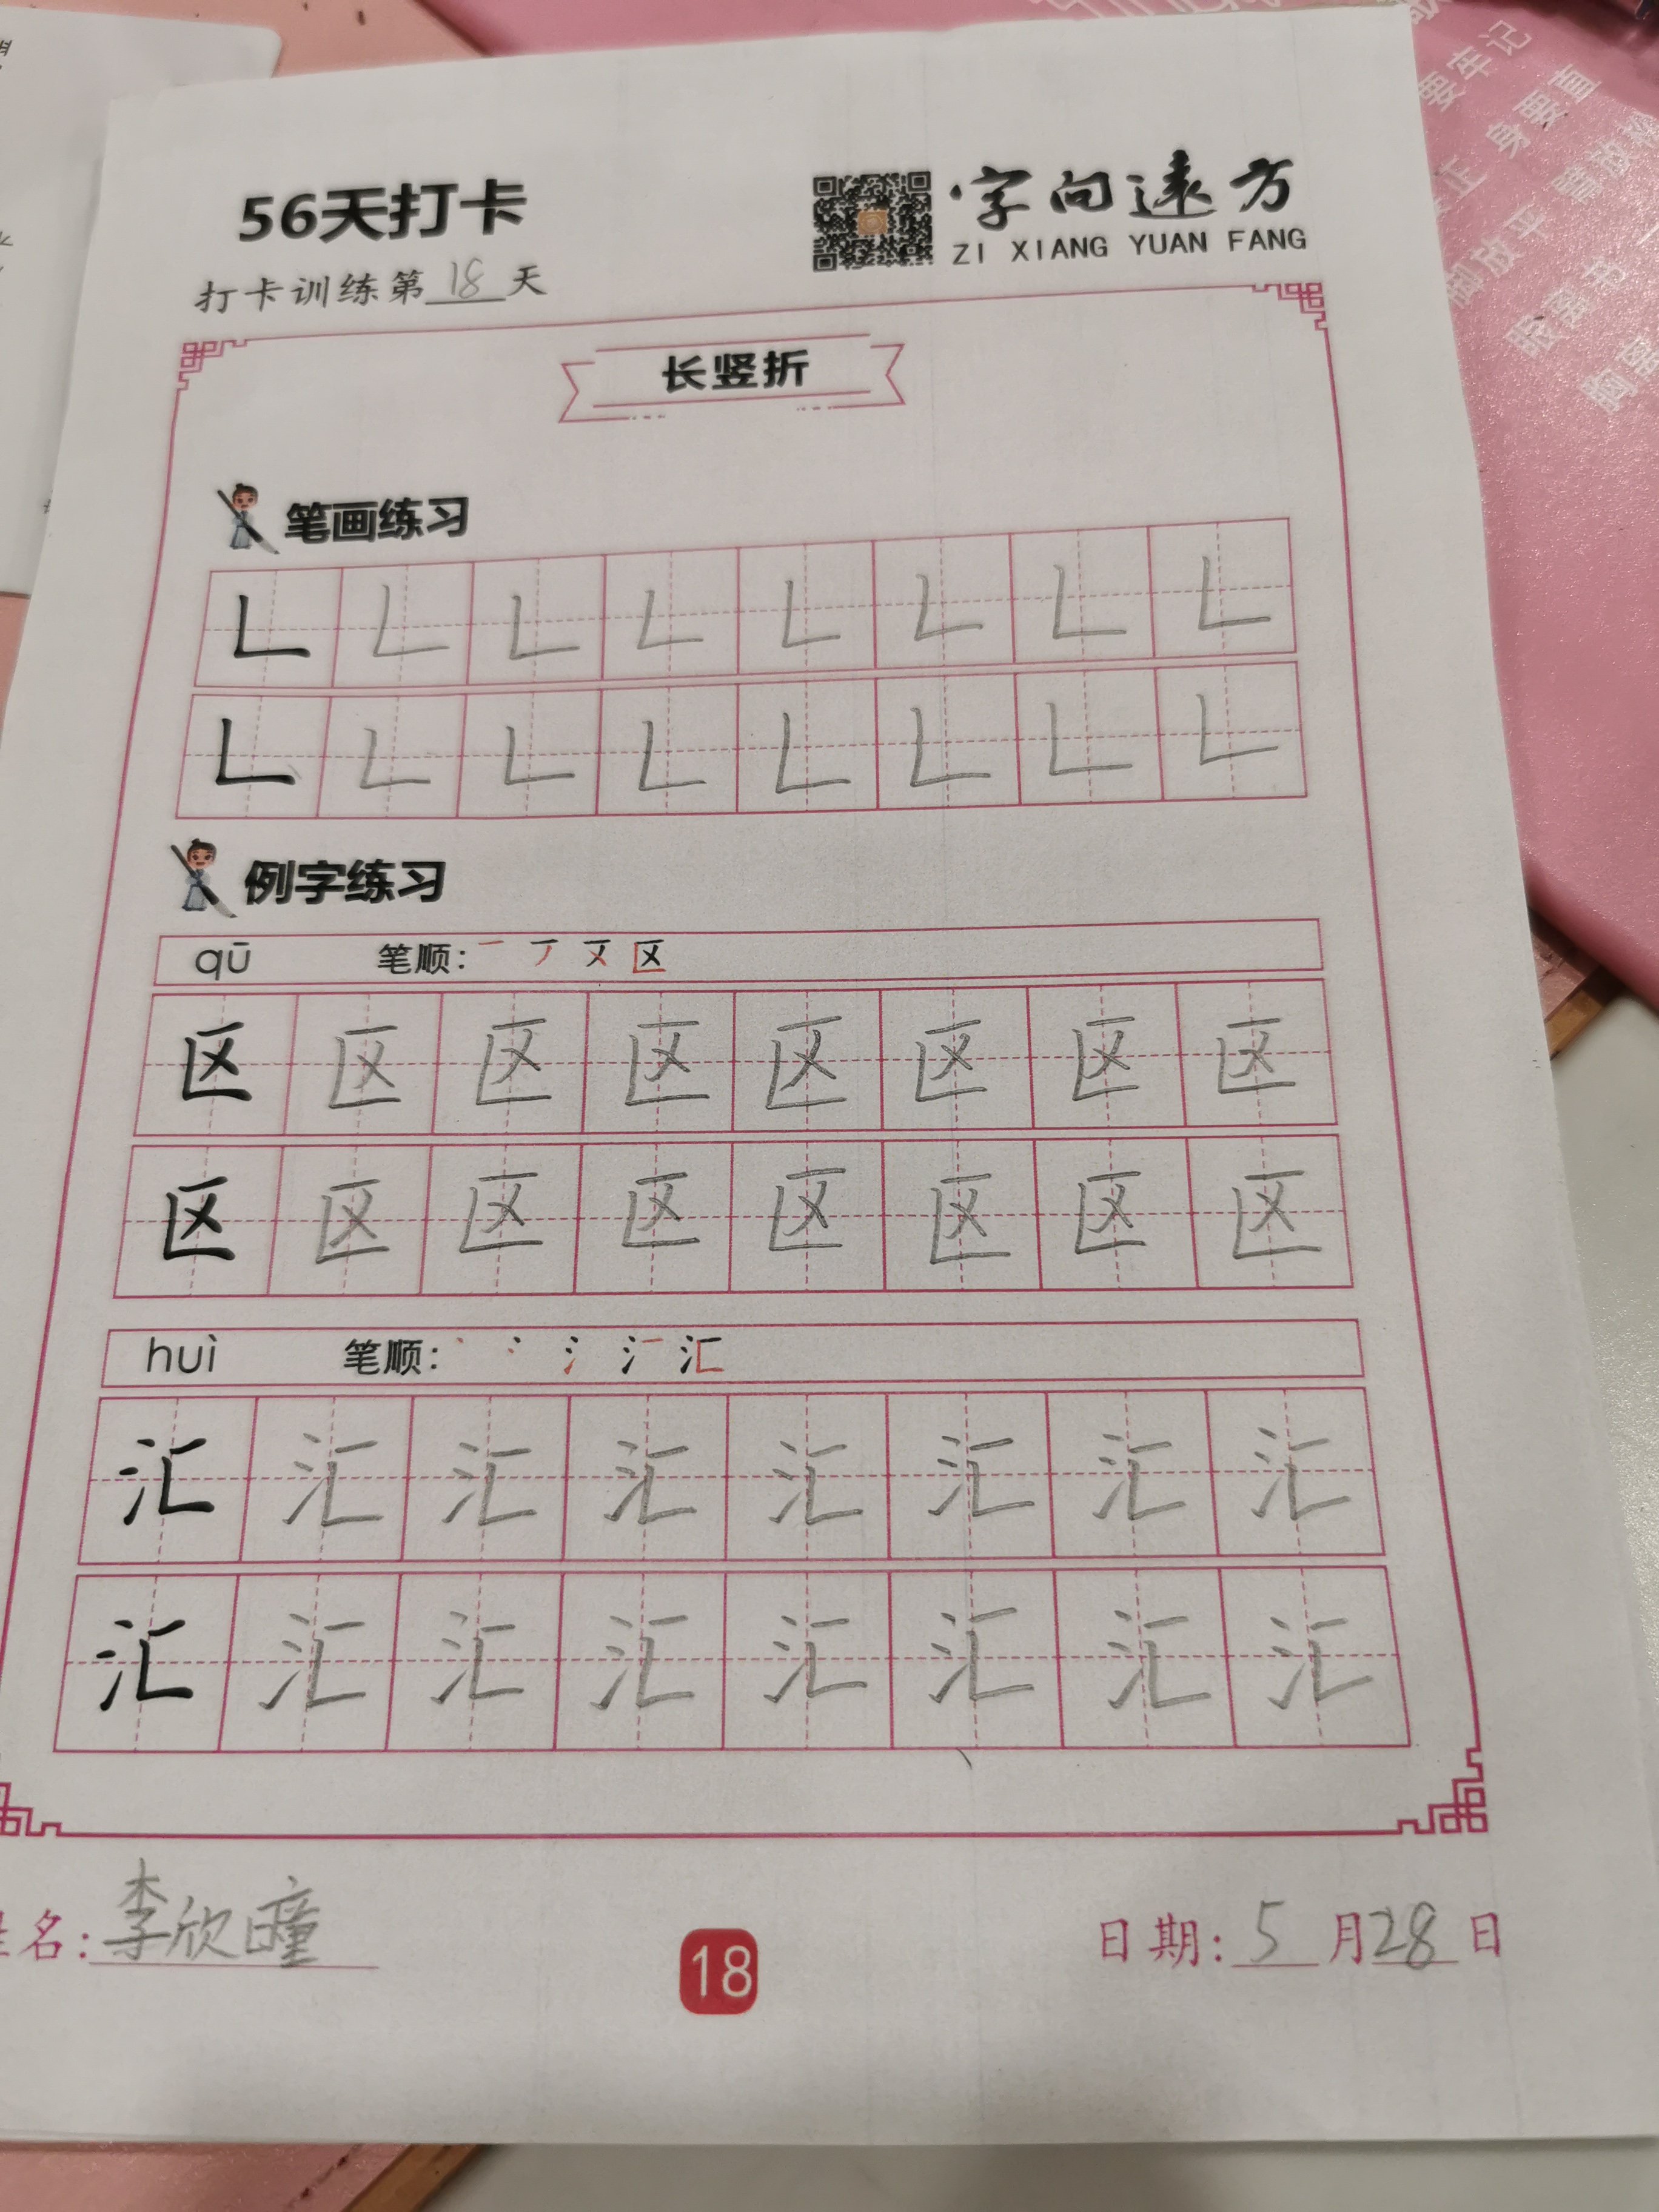 56天打卡
字向远方
ZI XIANG YUAN FANG
打卡训练第18天
长竖折
笔画练习
例字练习
qū 笔顺:
区 区 区 区 区 区 区 区
区 区 区 区 区 区 区 区
huì 笔顺:
汇 汇 汇 汇 汇 汇 汇 汇
汇 汇 汇 汇 汇 汇 汇 汇
姓名:李欣曈
18
日期:5月28日
要牢记
身要直
臂放松
肩放平